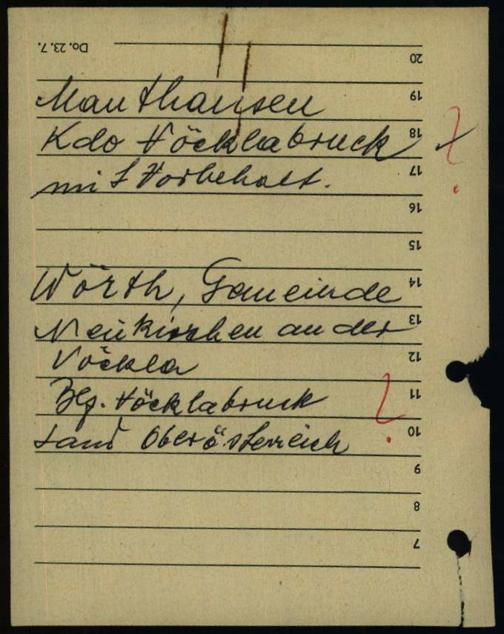 Do. 23. 7.
20
19
Mauthausen
18
Kdo Vöcklabruck ?
17
mit Vorbehalt.
16
15
14
Wörth, Gemeinde
13
Neukirchen an der
12
Vöckla
11
Bez. Vöcklabruck ?
10
Land Oberösterreich
9
8
7